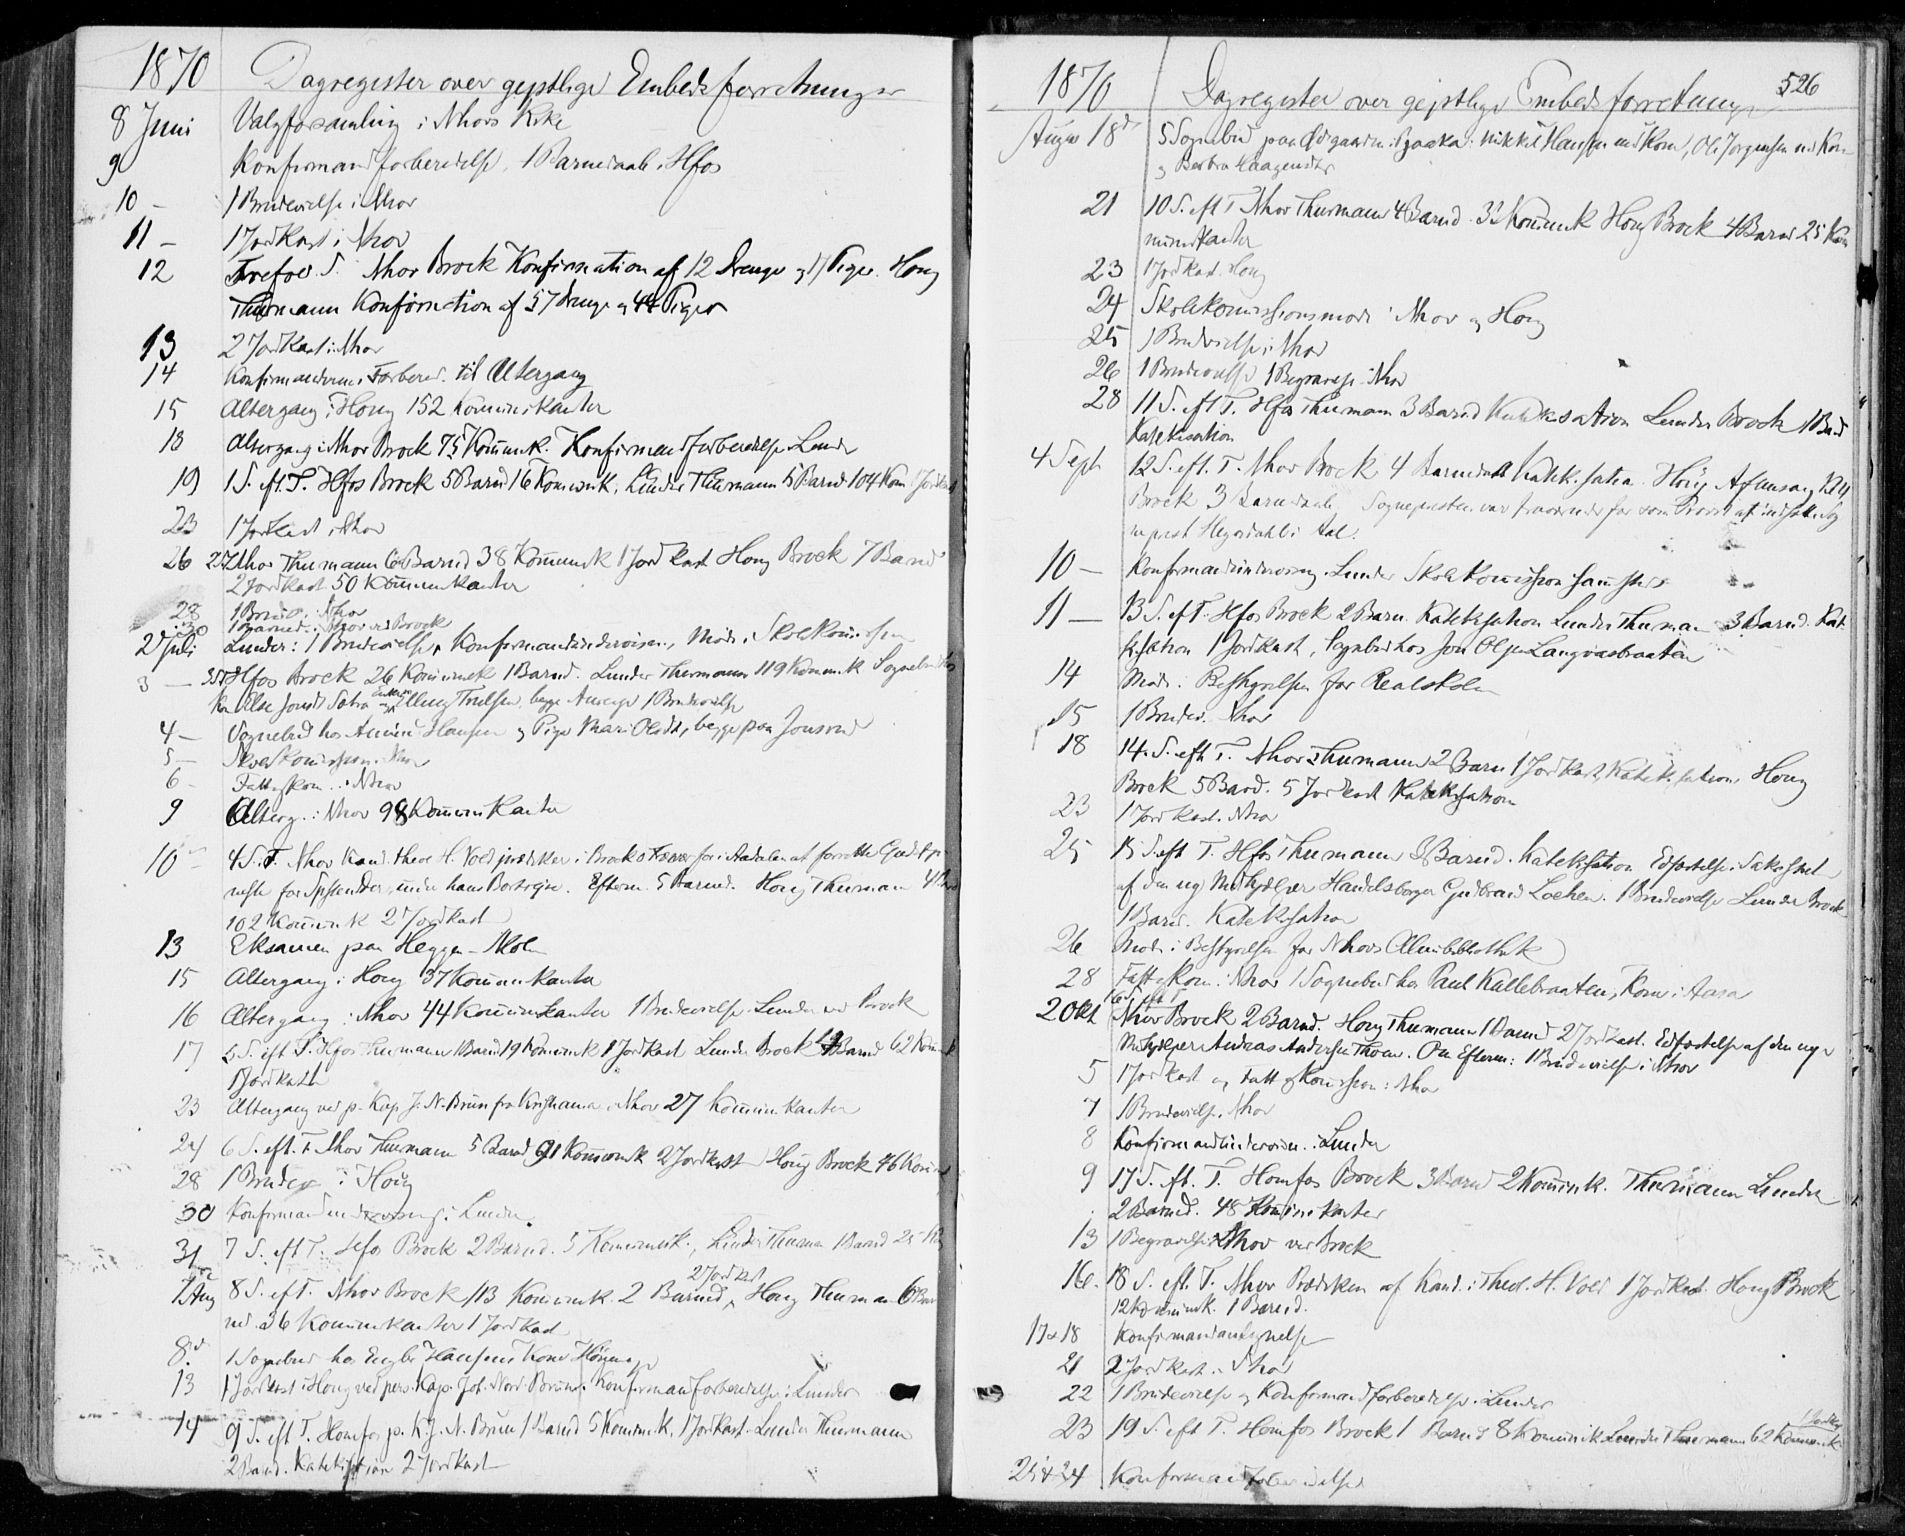 1870 Dagregister over gejstlige Embedsforretninger
8 Juni Valgforsamling i Nhovs Kirke
9 Konfirmandforberedelse, 1 Barnedaab i Hfos
10 — 1 Brudevielse i Nhov
11 — 1 Jordkast i Nhov
12 Trefold. S. Nhov Brock Konfirmation af 12 Drenge og 17 Piger. Houg
Thurmann Konfirmation af 57 Drenge og 44 Piger
13 2 Jordkast i Nhov
14 Konfirmandernes Forbered. til Altergang
15 Altergang i Houg 152 Kommunikanter
18 Altergang i Nhov Brock 75 Kommunk. Konfirmandforberedelse Lunder
19 1 S. eft. T. Hfos Brock 5 Barnd 16 Kommunk, Lunder Thurmann 5 Barnd 104 Kom 1 Jordkast
23 1 Jordkast i Nhov
26 2 S T Nhov Thurmann 6 Barnd 38 Kommunk 1 Jordkast Houg Brock 7 Barnd
2 Jordkast 50 Kommunikanter
28 1 Brudev. i Nhov
30 1 Barned. i Nhov ved Brock
2 Juli Lunder: 1 Brudevielse, Konfirmandundervisn., Møde i Skolekommissionen
3 — 3 S T Hfos Brock 26 Kommunk 1 Barnd. Lunder Thurmann 119 Kommunk Sognebud hos
Else Jonsd Sætra og Elling Truelsen, begge 1 Brudevielse
4 — Sognebud hos Hansen og Pige Mari Olsdt, begge paa Jonsrud
5 — Skolekommission. Nhov
6 - Fattigkom. i Nhov
9 Alterg. i Nhov 98 Kommunikanter
10 — 4 S. T. Nhov Kand. theol H. Vold prædiker i Brocks for i Aadalen at forrette Gudstje
neste for under hans Bortrejse. Efterm. 5 Barned. Houg Thurmann 4 Barn
102 Kommunk 2 Jordkast
13 Eksamen paa Heggen Skole
15 Altergang i Houg 37 Kommunikanter
16 Altergang i Nhov 44 Kommunikanter 1 Brudevielse Lunder ved Brock
17 5 S. eft T. Hfos Thurmann 1 Barnd 19 Kommunk 1 Jordkast Lunder Brock Barnd 62 Kommunk
1 Jordkast
23 Altergang ved p. Kap J. N. Brun fra Kristiania i Nhov 27 Kommunikanter
24 6 S. eft. T. Nhov Thurmann 5 Barnd 91 Kommunk 2 Jordkast Houg Brock 46 Kommunk
28 1 Brudev i Houg
30 Konfirmandundervisning i Lunder
31 7 S. eft T. Hfos Brock 2 Barnd. 5 Kommunik., Lunder Thurmann 1 Barnd 25 Kom
2 Jordkast
7 Aug 8 S. eft T. Nhov Brock 113 Kommunk. 2 Barned, Houg Thurmann 6 Bar
ned. 36 Kommunikanter 1 Jordkast
8d 1 Sognebud hos Engebr Hansens Kone
13 1 Jordkast i Houg ved pers. Kap. Joh. Nord. Brun. Konfirmandforberedelse i Lunder
14 9 S. eft T. Homfos p. K. J. N. Brun 1 Barnd 5 Kommunk, 1 Jordkast. Lunder Thurmann
2 Barnd. Katekisation 2 Jordkast
1870 Dagregister over gejstlige Embedsforretninger 526
Aug 18d 5 Sognebud paa Ødegaarden i Mikkel Hansen med Kone, Ole Jørgensen med Kone
og Barbra Haagensdtr
21 10 S. eft T Nhov Thurmann 4 Barnd. 32 Kommunk Houg Brock 4 Barnd 25 Kom
munikanter
23 1 Jordkast. Houg
24 Skolekommissionsmøde i Nhov og Houg
25 1 Brudevielse i Nhov
26 1 Brudevielse, 1 Begravelse i Nhov
28 11 S. eft T. Hfos Thurmann 3 Barnd Katekisation Lunder Brock 1 Barnd
Katekisation
4 Sept 12 S. eft. T. Nhov Brock, 4 Barnedaab Katekisation. Houg Aftensang Kl 4
Brock 3 Barnedaab. Sognepresten var fraværende for som Provst at indsætte Sog
neprest Hegerdahl i Aal.
10 — Konfirmandundervisng. Lunder Skolekommission sammesteds
11 — 13 S. eft T. Hfos Brock 2 Barn. Katekisation Lunder Thurmann 3 Barnd. Kate
kisation 1 Jordkast, Sognebud hos Jon Olsen Langvasbraaten
14 Møde i Bestyrelsen for Realskolen
15 1 Brudev. Nhov
18 14. S. eft T. Nhov Thurmann 2 Barn 1 Jordkast Katekisation, Houg
Brock 5 Barnd. 5 Jordkast Katekisation
23 1 Jordkast. Nhov
25 15 S. eft T. Hfos Thurmann 3 Barnd. Katekisation Edfæstelse i Sakristiet
af den ny Medhjælper Handelsborger Gudbrand Lochen. 1 Brudevielse Lunder Brock
1 Barnd. Katekisation
26 Møde i Bestyrelsen for Nhovs Almubibliothek
28 Fattigkom. i Nhov 1 Sognebud hos Paul Kallebraaten, Kone i Aasa
16 S. eft T
2 Okt Nhov Brock 2 Barnd. Houg Thurmann 1 Barnd 2 Jordkast. Edfæstelse af den nye
Medhjælper Andreas Andersen Thoen. Om Efterm: 1 Brudevielse i Nhov
5 1 Jordkast og Fattigkommission i Nhov
7 1 Brudevielse. Nhov
8 Konfirmandundervisn. i Lunder
9 17 S. eft. T. Homfos Brock 3 Barnd 2 Kommunk. Thurmann Lunder
2 Barned. 48 Kommunikanter
13 1 Begravelse i Nhov ved Brock
16. 18 S. eft. T. Nhov Prædiken af Kand. i Theol. H. Vold 1 Jordkast. Houg Brock
12 Kommunk. 1 Barnd.
17 & 18 Konfirmandantegnelse
21 2 Jordkast i Nhov
22 1 Brudevielse og Konfirmandforberedelse i Lunder
1 Jordkast
23 19 S. eft T. Homfos Brock 1 Barnd 8 Kommunik Lunder Thurmann 62 Kommunk
24 Konfirmandforberedelse